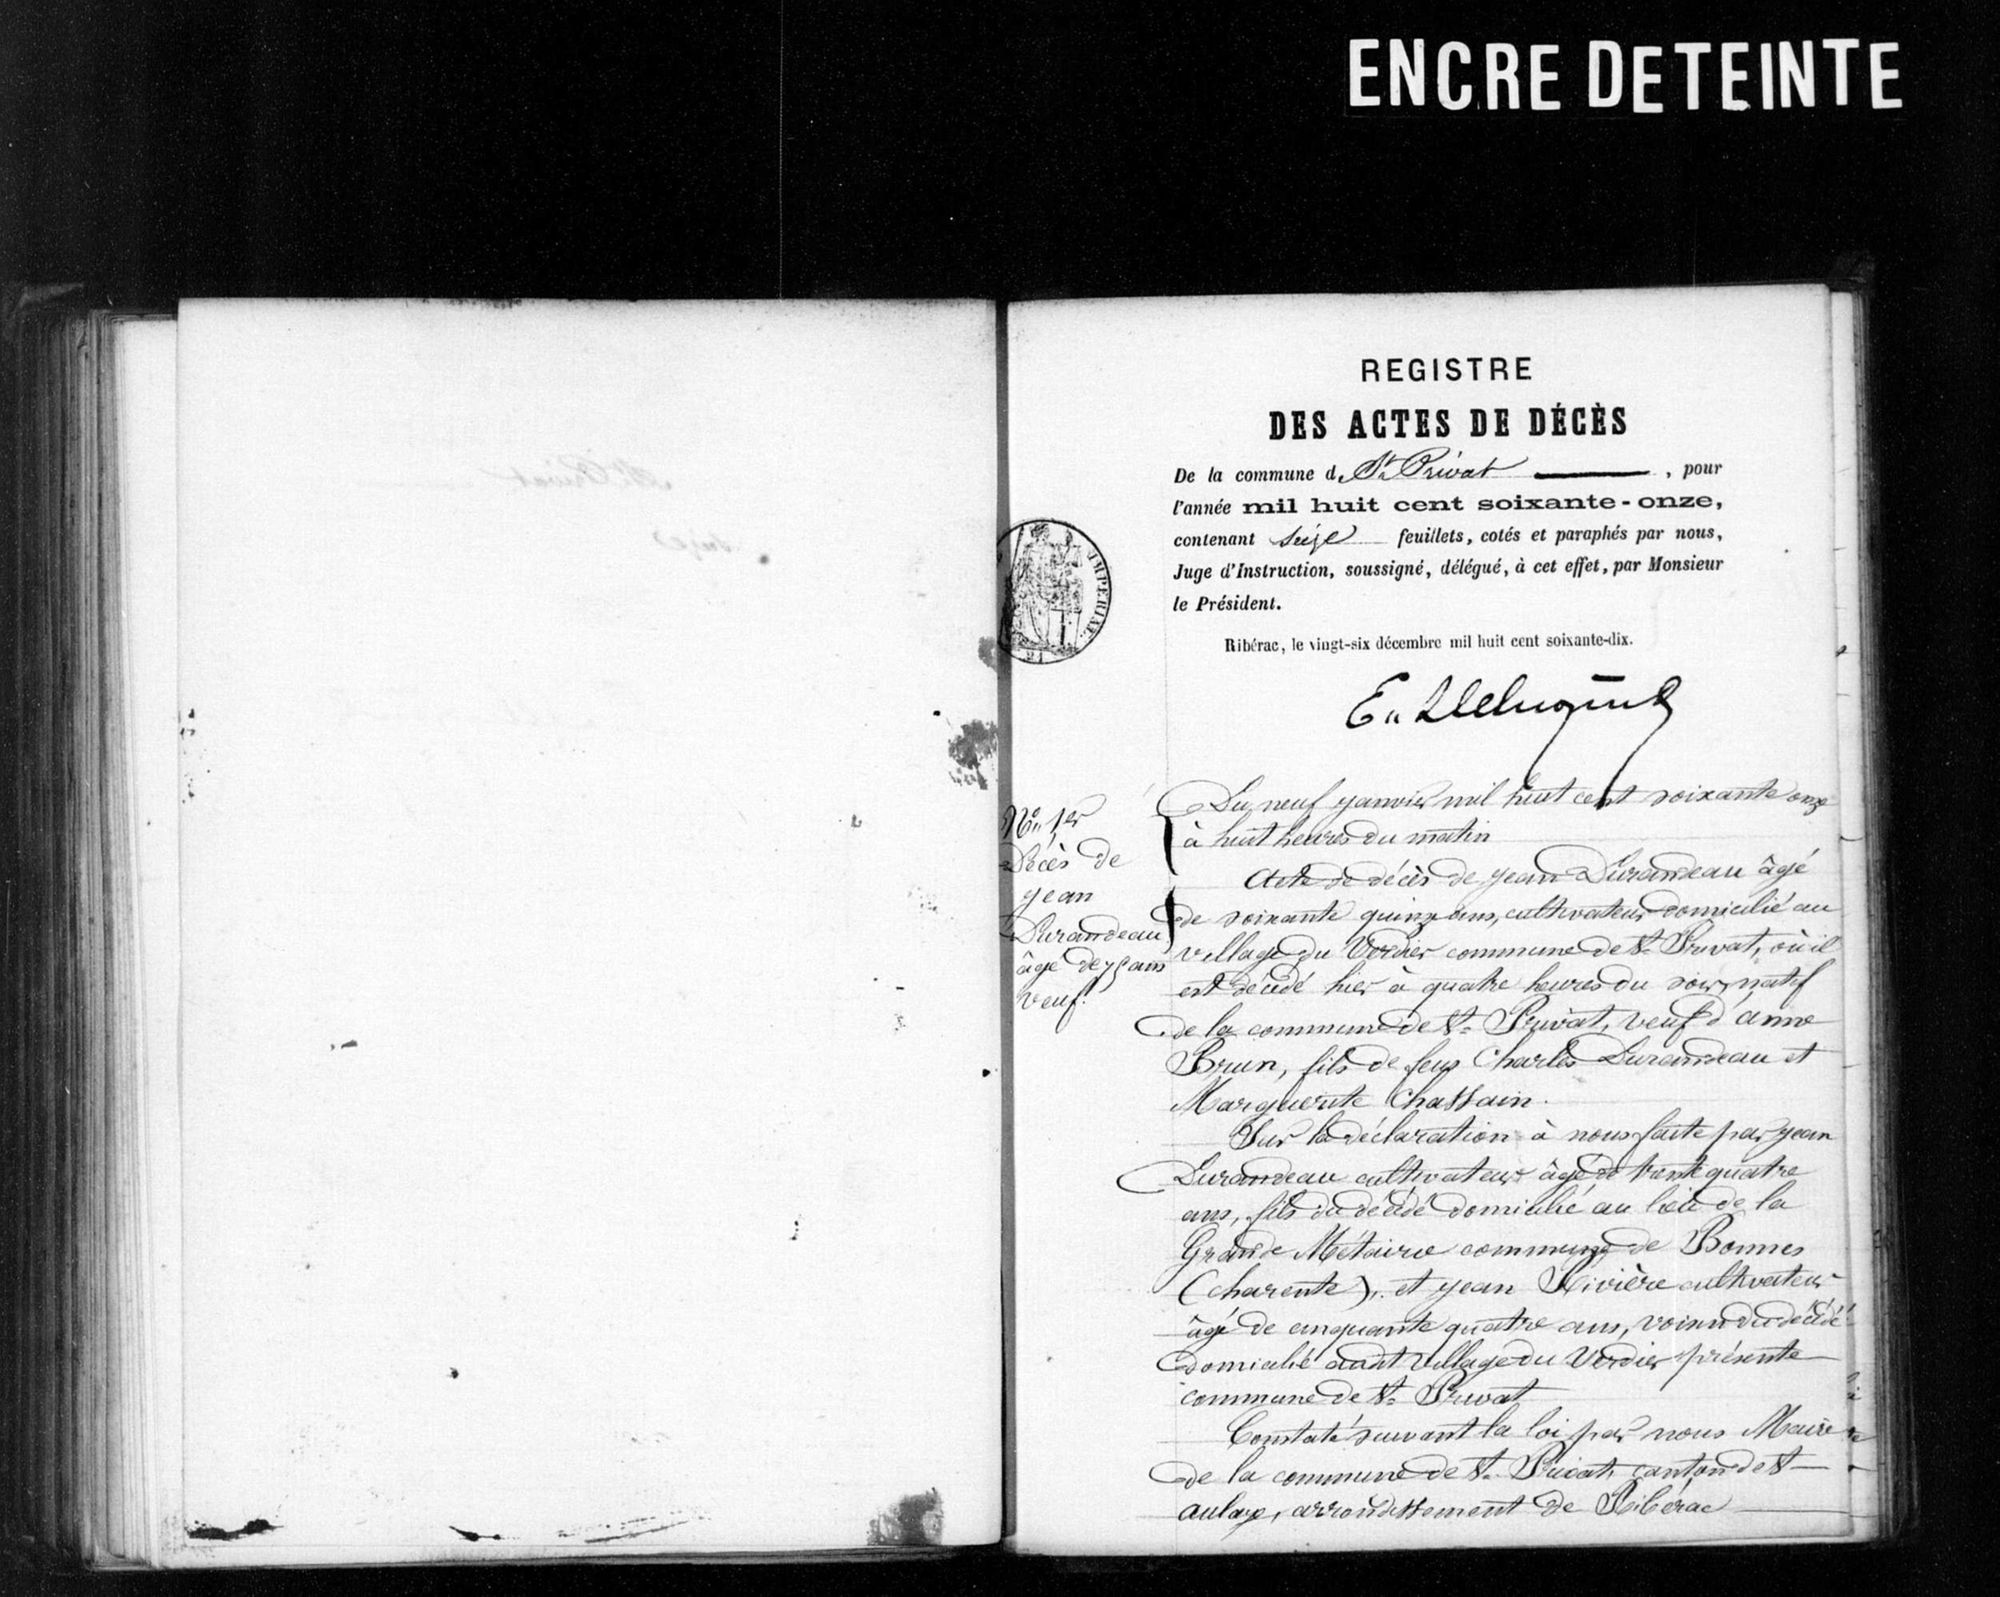 ENCRE DETEINTE
REGISTRE
DES ACTES DE DÉCÈS
De la commune d St Privat , pour
l'année mil huit cent soixante-onze,
contenant seize feuillets, cotés et paraphés par nous,
Juge d'Instruction, soussigné, délégué, à cet effet, par Monsieur
le Président.
IMPERIAL
Ribérac, le vingt-six décembre mil huit cent soixante-dix.
No 1er
Décès de
jean
Durandeau
âgé de 75 ans
veuf.
Du neuf janvier mil huit cent soixante onze
à huit heures du matin
Acte de décès de jean Durandeau âgé
de soixante quinze ans, cultivateur domicilié au
village du Verdier commune de St Privat, où il
est décédé hier à quatre heures du soir, natif
de la commune de St Privat, veuf d'anne
Brun, fils de feus Charles Durandeau et
Marguerite Chassain.
Sur la déclaration à nous faite par jean
Durandeau cultivateur âgé de trente quatre
ans, fils du décédé domicilié au lieu de la
Grande Métairie commune de Bonnes
(charente), et jean Rivière cultivateur
âgé de cinquante quatre ans, voisin du décédé
domicilié audit village du Verdier présente
commune de St Privat
Constaté suivant la loi par nous Maire
de la commune de St Privat, canton de St
aulaye, arrondissement de Ribérac